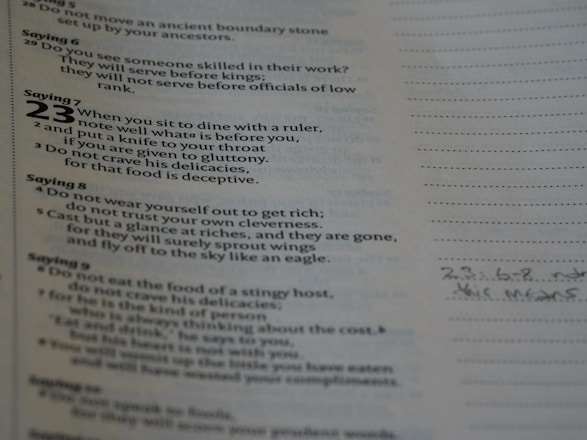 Saying 5
28 Do not move an ancient boundary stone
set up by your ancestors.
Saying 6
29 Do you see someone skilled in their work?
They will serve before kings;
they will not serve before officials of low
rank.
Saying 7
23 When you sit to dine with a ruler,
note well what a is before you,
2 and put a knife to your throat
if you are given to gluttony.
3 Do not crave his delicacies,
for that food is deceptive.
Saying 8
4 Do not wear yourself out to get rich;
do not trust your own cleverness.
5 Cast but a glance at riches, and they are gone,
for they will surely sprout wings
and fly off to the sky like an eagle.
Saying 9
6 Do not eat the food of a stingy host,
do not crave his delicacies;
7 for he is the kind of person
who is always thinking about the cost. b
"Eat and drink," he says to you,
but his heart is not with you.
8 You will vomit up the little you have eaten
and will have wasted your compliments.
Saying 10
9 Do not speak to fools,
for they will scorn your prudent words.
23: 6-8
means